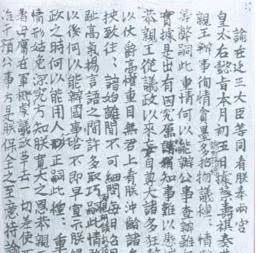 諭在廷王大臣等同看朕奉兩宮
皇太后懿旨本月初五日據蔡壽祺奏恭
親王辦事徇情貪墨多招物議種種情
等弊嗣此重情何以能辦公事查辦雖
實據是出有因究屬知事難以懸
恭親王從議政以來妄自尊大諸多狂
以仗爵高權重目無君上看朕沖齡諸
挾致往往諳始離間不可細問每日
趾高氣揚言語之間許多取巧嗣此情
以後何以能辦國事若不即早宣示朕
政之時何以能用人行正嗣此種種重
情形姑免深究方知朕寬大之恩恭親
在軍機處議政革去一切差使不
准干預公事方是朕保全之至意特諭